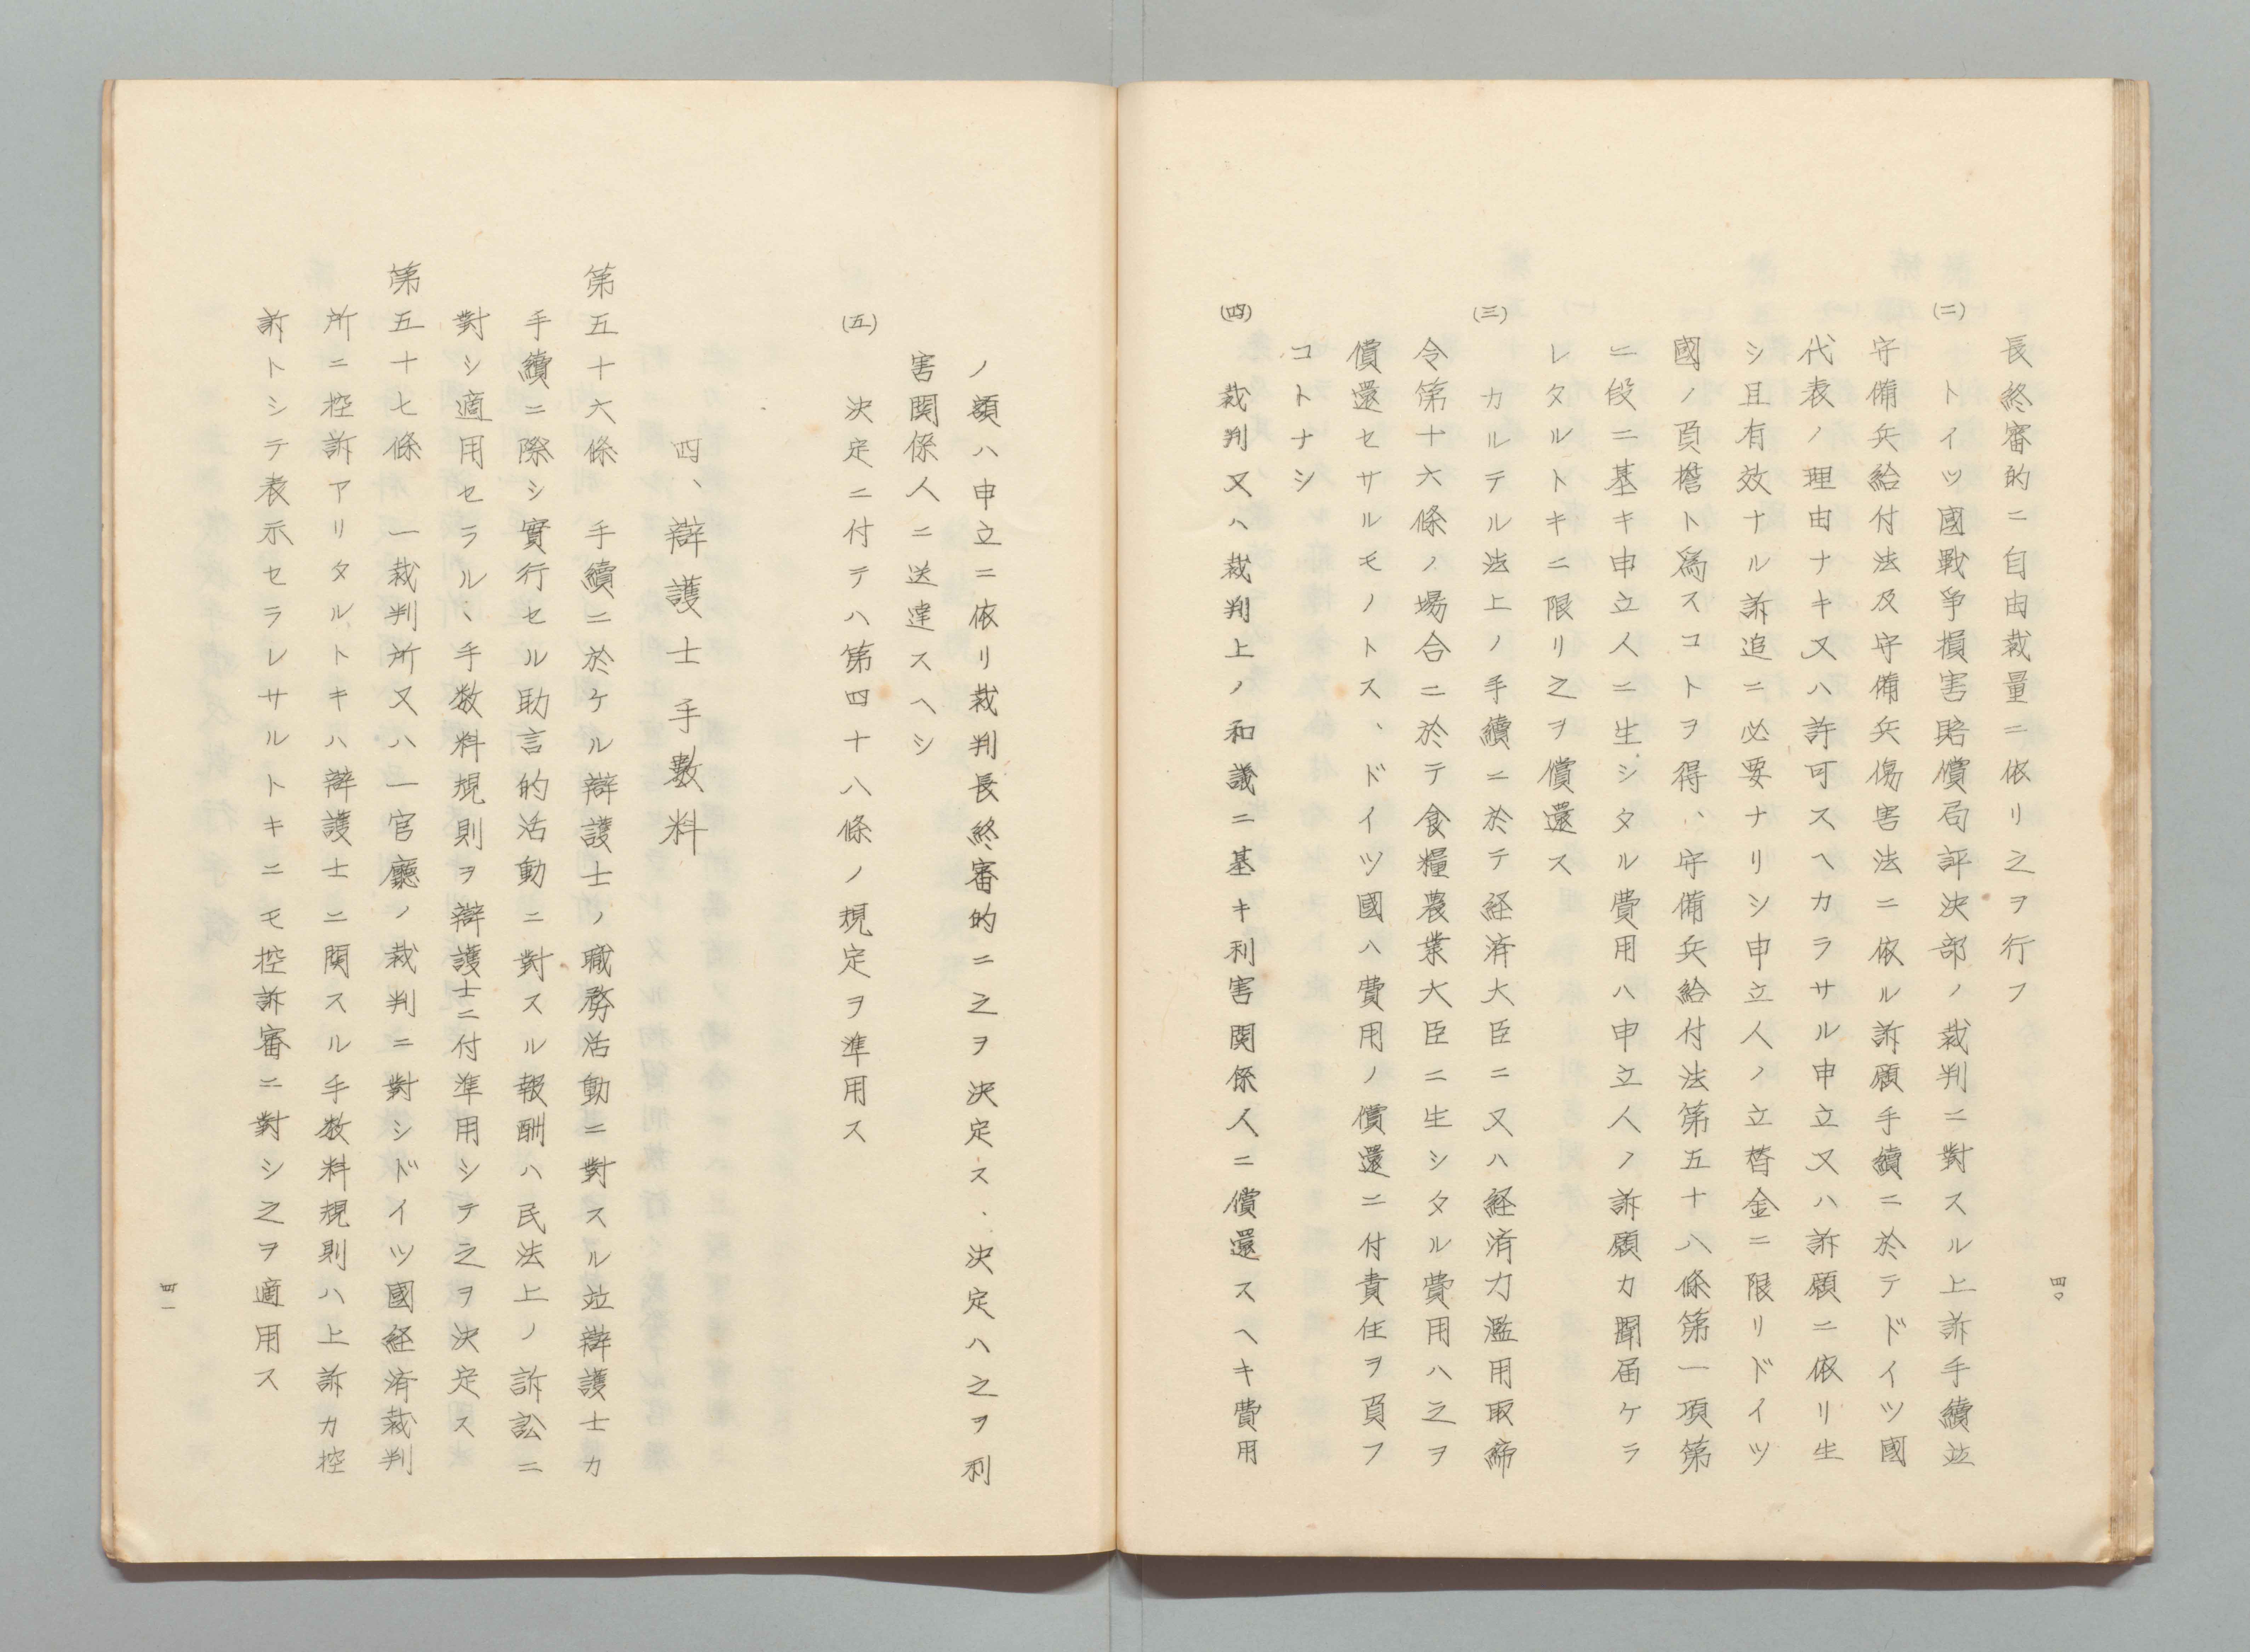 長終審的ニ自由裁量ニ依リ之ヲ行フ
(二)　トイツ國戰爭損害賠償局評決部ノ裁判ニ對スル上訴手續竝
守備兵給付法及守備兵傷害法ニ依ル訴願手續ニ於テドイツ國
代表ノ理由ナキ又ハ許可スヘカラサル申立又ハ訴願ニ依リ生
シ且有效ナル訴追ニ必要ナリシ申立人ノ立替金ニ限リドイツ
國ノ負擔ト爲スコトヲ得、守備兵給付法第五十八條第一項第
二段ニ基キ申立人ニ生シタル費用ハ申立人ノ訴願カ聞届ケラ
レタルトキニ限リ之ヲ償還ス
(三)　カルテル法上ノ手續ニ於テ経済大臣ニ又ハ経済力濫用取締
令第十六條ノ場合ニ於テ食糧農業大臣ニ生シタル費用ハ之ヲ
償還セサルモノトス、ドイツ國ハ費用ノ償還ニ付責任ヲ負フ
コトナシ
(四)　裁判又ハ裁判上ノ和議ニ基キ利害関係人ニ償還スヘキ費用
四〇
ノ額ハ申立ニ依リ裁判長終審的ニ之ヲ決定ス、決定ハ之ヲ利
害関係人ニ送達スヘシ
(五)　決定ニ付テハ第四十八條ノ規定ヲ準用ス
四、辯護士手數料
第五十六條　手續ニ於ケル辯護士ノ職務活動ニ對スル竝辯護士カ
手續ニ際シ實行セル助言的活動ニ對スル報酬ハ民法上ノ訴訟ニ
對シ適用セラル、手数料規則ヲ辯護士ニ付準用シテ之ヲ決定ス
第五十七條　一裁判所又ハ一官廳ノ裁判ニ對シドイツ國経済裁判
所ニ控訴アリタルトキハ辯護士ニ関スル手数料規則ハ上訴カ控
訴トシテ表示セラレサルトキニモ控訴審ニ對シ之ヲ適用ス
四一